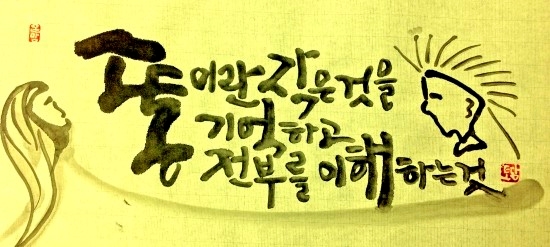 소통이란 작은것을
기억하고
전부를 이해하는것